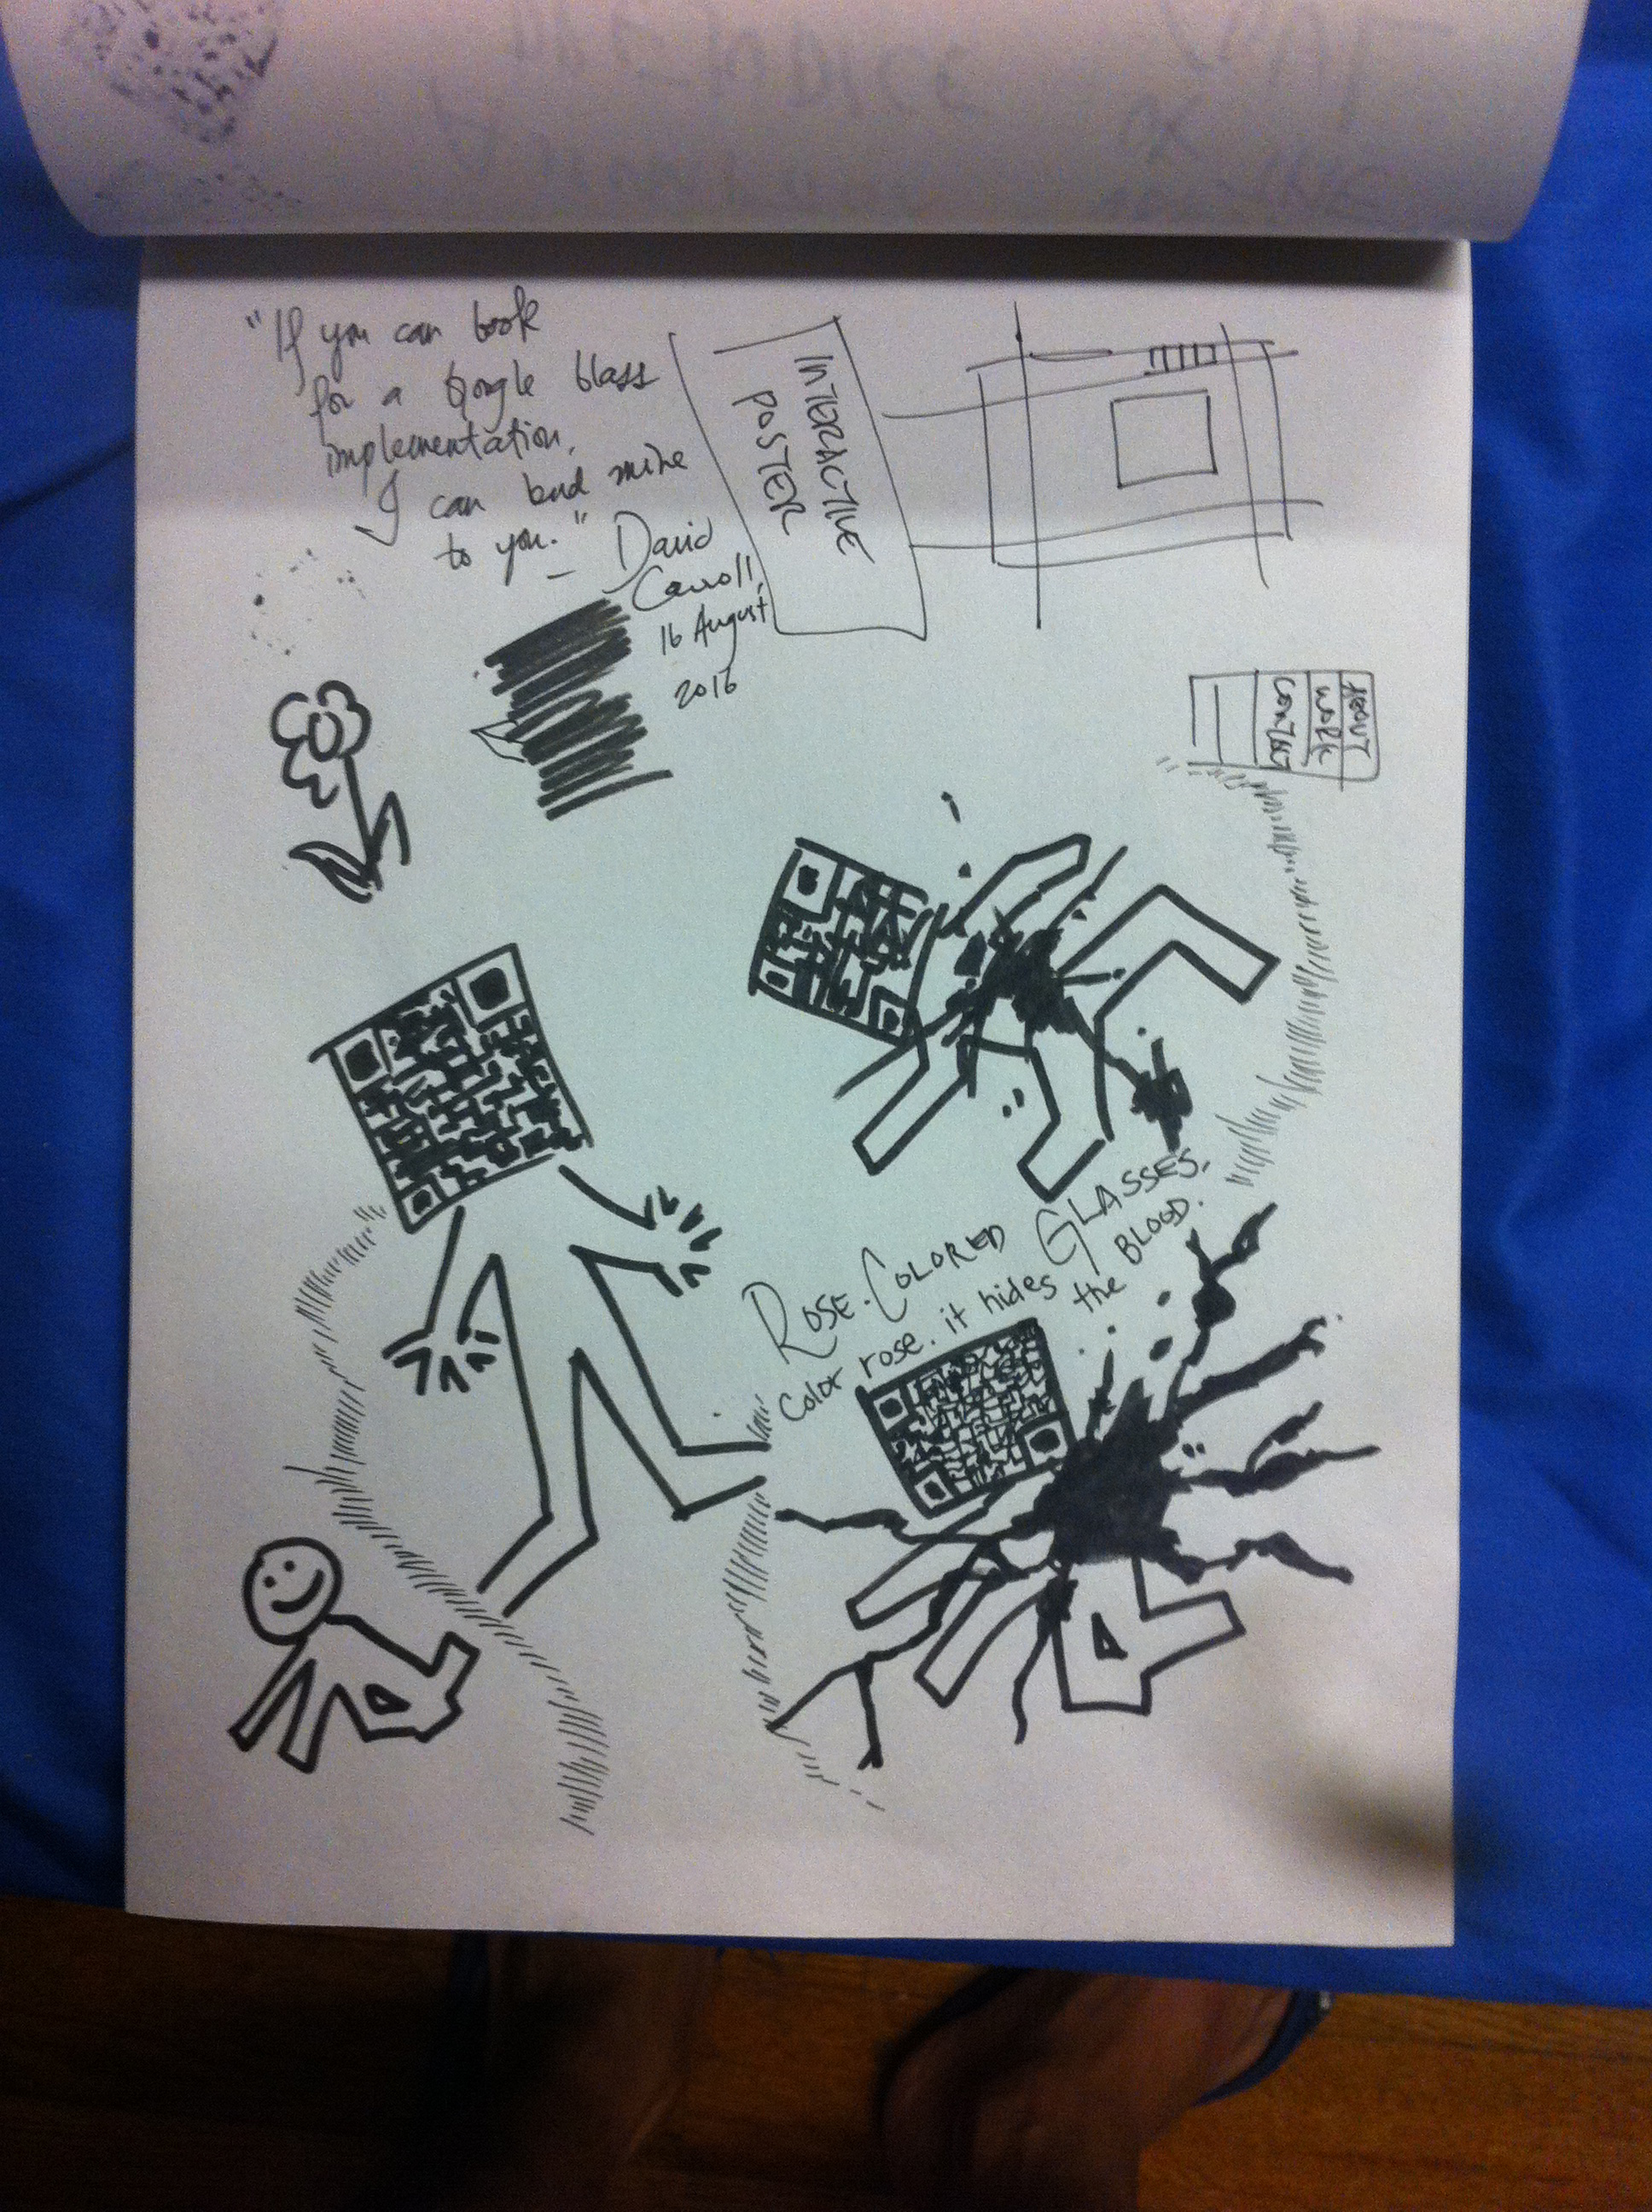 "If you can book
for a Google Glass
implementation,
I can lend mine
to you."
— David
Carroll,
16 August
2016
INTERACTIVE
POSTER
ABOUT
WORK
CONTACT
ROSE-COLORED GLASSES.
Color rose. it hides the BLOOD.